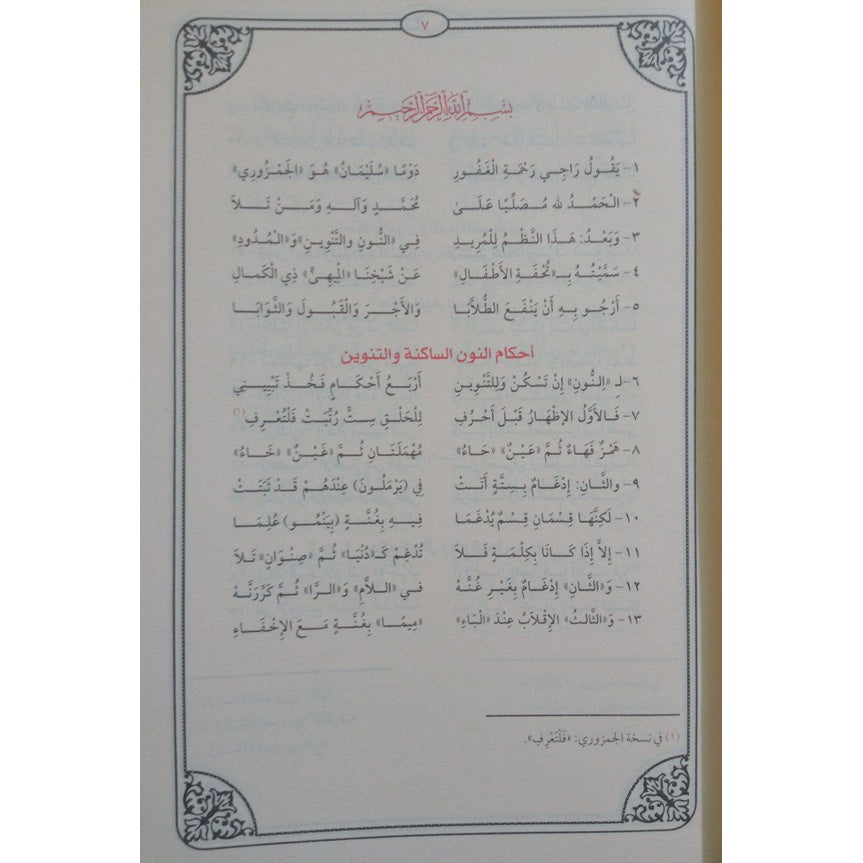 ٧
بسم الله الرحمن الرحيم
١- يَقُولُ رَاجِي رَحْمَةِ الْغَفُورِ دَوْمًا «سُلَيْمَانُ» هُوَ «الْجَمْزُورِي»
٢- الْحَمْدُ لله مُصَلِّيًا عَلَىٰ مُحَمَّدٍ وَآلِهِ وَمَنْ تَلَا
٣- وَبَعْدُ: هَذَا النَّظْمُ لِلْمُرِيدِ فِي «النُّونِ والتَّنْوِينِ» وَ«الْمُدُودِ»
٤- سَمَّيْتُهُ بِـ«تُحْفَةِ الأَطْفَالِ» عَنْ شَيْخِنَا «الْمِيهِيِّ» ذِي الْكَمَالِ
٥- أَرْجُو بِهِ أَنْ يَنْفَعَ الطُّلَّابَا وَالأَجْرَ وَالْقَبُولَ وَالثَّوَابَا
أحكام النون الساكنة والتنوين
٦- لِـ «النُّونِ» إِنْ تَسْكُنْ وَلِلتَّنْوِينِ أَرْبَعُ أَحْكَامٍ فَخُذْ تَبْيِينِي
٧- فَالأَوَّلُ الإِظْهَارُ قَبْلَ أَحْرُفِ لِلْحَلْقِ سِتٌّ رُتِّبَتْ فَلْتُعْرِفِ(١)
٨- هَمْزٌ فَهَاءٌ ثُمَّ «عَيْنٌ» «حَاءُ» مُهْمَلَتَانِ ثُمَّ «غَيْنٌ» «خَاءُ»
٩- والثَّانِ: إِدْغَامٌ بِسِتَّةٍ أَتَتْ فِي (يَرْمَلُونَ) عِنْدَهُمْ قَدْ ثَبَتَتْ
١٠- لَكِنَّهَا قِسْمَانِ قِسْمٌ يُدْغَمَا فِيهِ بِغُنَّةٍ (بِيَنْمُو) عُلِمَا
١١- إِلَّا إِذَا كَانَا بِكِلْمَةٍ فَلَا تُدْغِمْ كَـ«دُنْيَا» ثُمَّ «صِنْوَانٍ» تَلَا
١٢- وَ«الثَّانِ» إِدْغَامٌ بِغَيْرِ غُنَّهْ في «اللاَّمِ» وَ«الرَّا» ثُمَّ كَرِّرَنَّهْ
١٣- وَ«الثَّالثُ» الإِقْلَابُ عِنْدَ «الْبَاءِ» «مِيمًا» بِغُنَّةٍ مَعَ الإِخْفَاءِ
(١) في نسخة الجمزوري: «فَلْتَعْرِفِ».